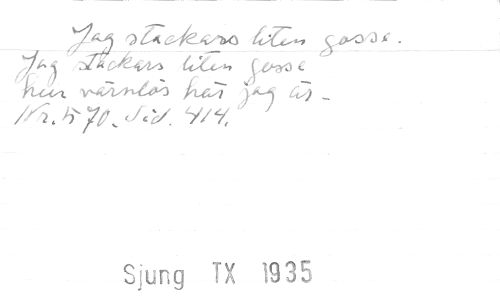 Jag stackars liten gosse.
Jag stackars liten gosse
hur värnlös här jag är -
Nr. 570. Sid. 414.
Sjung TX 1935